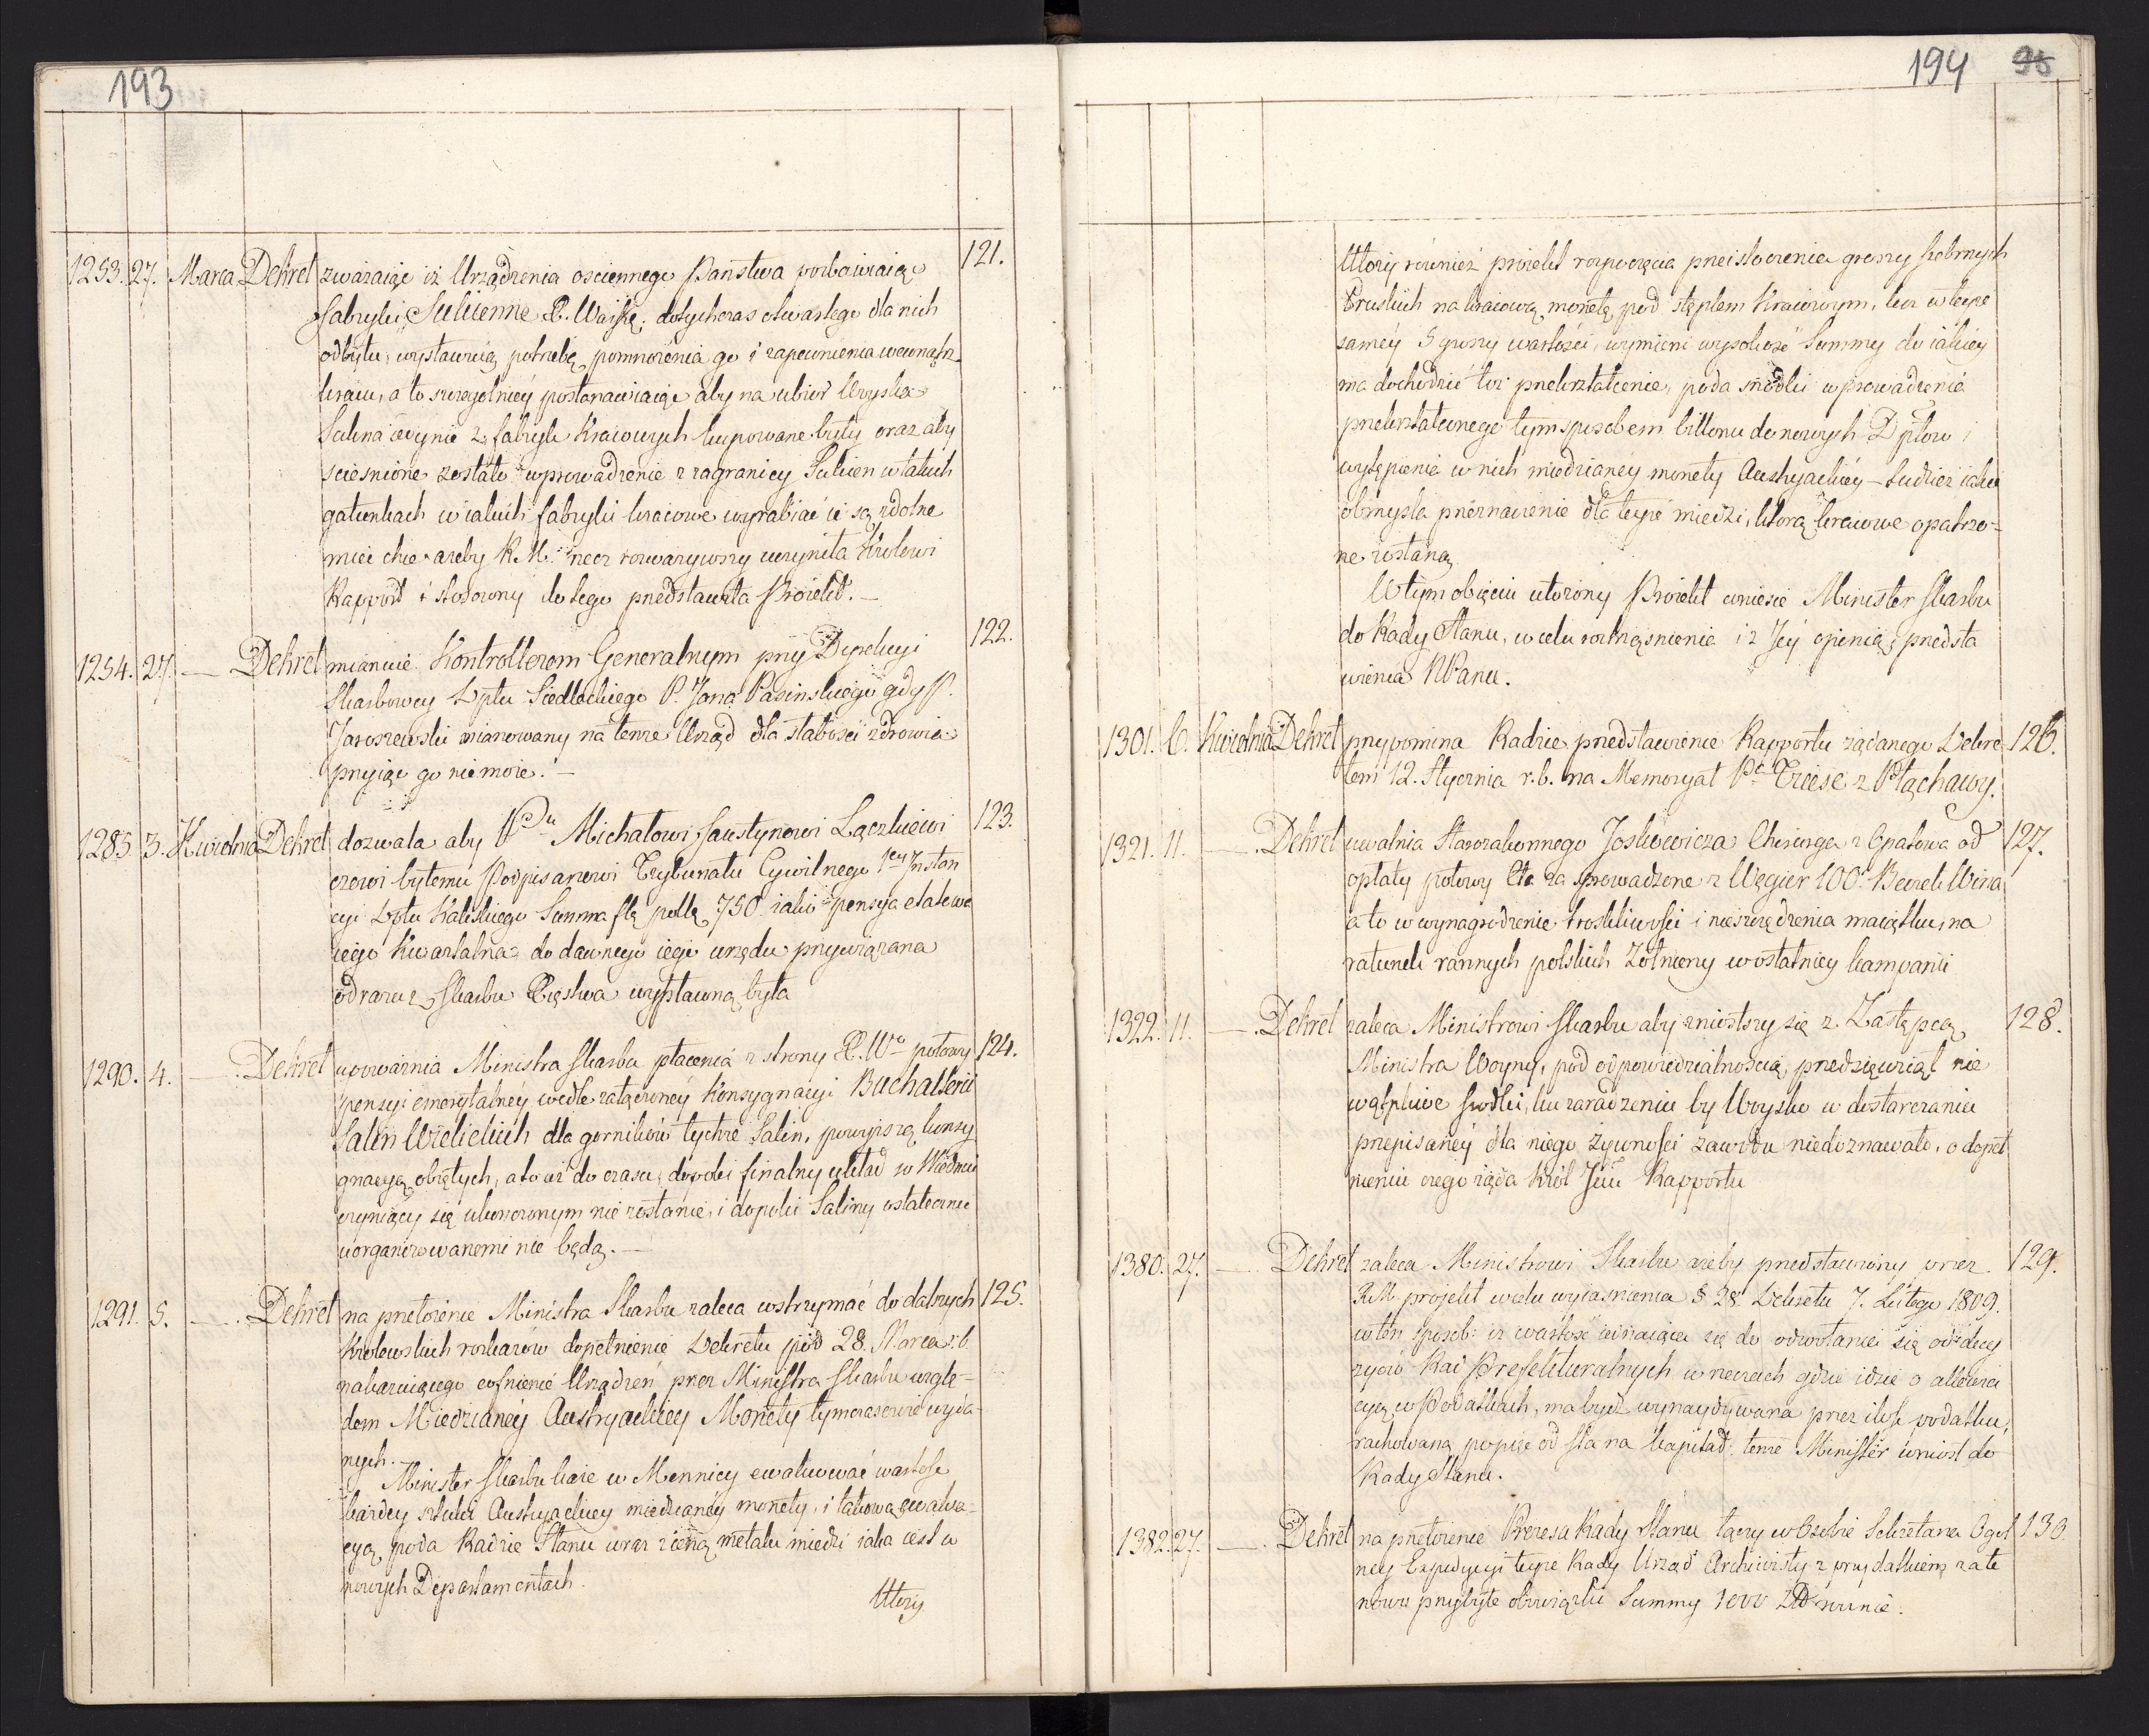 193
1253. 27. Marca Dekret zwazaiąc iż Urządzenia osciennego Państwa pozbawiaiąc 121.
fabryki Sukienne X. Warsz: dotychczas otwartego dla nich
odbytu, wystawuią potrzebę pomnożenia go i zapewnienia wewnątrz
kraiu, a to szczegolniéy postanawiaiąc aby na ubiór Woyska
Sukna iedynie z fabryk Kraiowych kupowane były oraz aby
scieśnione zostało wprowadzenie z zagranicy Sukien w takich
gatunkach w iakich fabryki kraiowe wyrabiać ie są zdolne
mieć chce azeby R. M. rzecz rozwazywszy uczyniła Krolowi
Rapport i stosowny do tego przedstawiła Proiekt. —
1254. 27. — Dekret mianuie Kontrollerem Generalnym przy Dyrekcyi 122.
Skarbowey Dptu Siedleckiego P. Jana Pasinskiego gdy P.
Jaroszewski mianowany na tenze Urząd dla słabosci zdrowia
przyiąć go nie moze. —
1285 3. Kwietnia Dekret dozwala aby Michałowi Faustynowi Łączkiewi 123.
czowi byłemu Podpisarzowi Trybunału Cywilnego 1ey Instan
cyi Dptu Kaliskiego Summa fl pol 750 iako pensya etatowa
iego Kwartalna do dawnego iego urzędu przywiązana
odrazu z Skarbu Xięstwa wypłacona była
1290. 4. — Dekret upoważnia Ministra Skarbu płacenia z strony X. Wo połowy 124.
pensyi emerytalnéy wedle załączonéy Konsygnacyi Buchalterii
Salin Wielickich dla gornikow tychze Salin, powyzszą konsy
gnacyą obiętych, a to az do czasu, dopoki finalny układ w Wiedniu
czyniący się ukonczonym nie zostanie, i dopoki Saliny ostatecznie
uorganizowanemi nie będą. —
1291. 5. — Dekret na przełożenie Ministra Skarbu zaleca wstrzymać do dalszych 125.
Krolewskich rozkazów dopełnienie Dekretu pod 28. Marca r. b.
nakazuiącego cofnienié Urządzeń przez Ministra Skarbu wzglę-
dem Miedzianéy Austryackiey Monety tymczasowie wyda-
nych. —
Minister Skarbu kaze w Mennicy ewaluować wartość
kazdey sztuki Austryackiey miedzianéy monety, i takową ewalua-
cyą poda Radzie Stanu wraz z ceną metalu miedzi iaka iest w
nowych Departamentach.
Ktory
194 95
Ktory również proiekt rozpoczęcia przeistoczenia groszy srebrnych
Pruskich na kraiową monetę pod stęplem Kraiowym, lecz w teyze
saméy 5 groszy wartości, wymieni wysokosć Summy do iakiey
ma dochodzić toz przekształcenie, poda srzodki wprowadzenia
przekształconego tym sposobem billonu do nowych Dptow i
wytępienia w nich miedzianéy monety Austryackiéy – tudziez iakie
obmysla przeznaczenie dla teyze miedzi, ktorą kraiowe opatrzo-
ne zostaną
W tym obięciu utozony Proiekt wniesie Minister Skarbu
do Rady Stanu, w celu roztrząsnienia i z Jey opinią przedsta
wienia NPanu.
1301. 6. Kwietnia Dekret przypomina Radzie przedstawienie Rapportu ządanego Dekre 126.
tem 12. Stycznia r. b. na Memoryał Pa Triese z Płąchawy.
1321. 11. — Dekret uwalnia Starozakonnego Joskowicza Chirurga z Opatowa od 127.
opłaty połowy Cła za sprowadzone z Węgier 100. Beczek Wina
a to w wynagrodzenie troskliwości i nieszczędzenia maiątku, na
ratunek rannych polskich Zołnierzy w ostatniey kampanii
1322. 11. — Dekret zaleca Ministrowi Skarbu aby zniosłszy się z Zastępcą 128.
Ministra Woyny, pod odpowiedzialnoscią, przedsięwziął nie
wątpliwe srodki, ku zaradzeniu by Woysko w dostarczaniu
przepisanéy dla niego żywności zawodu niedoznawało, o dopeł
nieniu czego ząda Król Jmć Rapportu
1380. 27. — Dekret zaleca Ministrowi Skarbu azeby przedstawiony przez 129.
R.M. projekt w celu wyiasnienia § 28. Dekretu 7. Lutego 1809.
w ten sposob: iz wartosc sciągaiąca się do odwołania się od decy
zyów Rad Prefekturalnych w rzeczach gdzie idzie o allewia
cyą w Podatkach, ma bydz wynaydywana przez ilość podatku,
rachowaną po pięć od sta na kapitał, tenze Minister wniosł do
Rady Stanu.
1382. 27. — Dekret na przełozenie Prezesa Rady Stanu łączy w Osobie Sekretarza Ogol 130.
ney Expedycyi teyze Rady Urząd Archiwisty z przydatkiem za te
nowo przybyłe obowiązki Summy 1000 Zł rocznie.